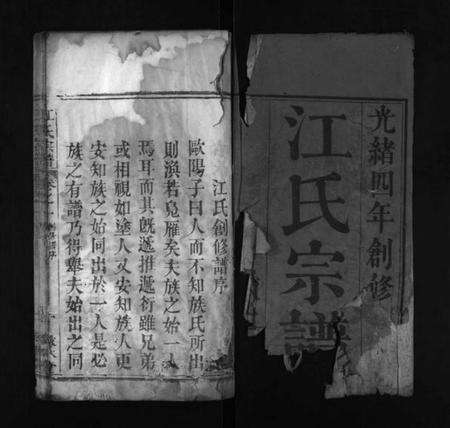 光緒四年創修
江氏宗譜
江氏創修譜序
歐陽子曰人而不知族氏所出
則溟若鳧雁矣夫族之始一人
焉耳而其旣遞推遞衍雖兄弟
或相視如塗人又安知族人更
安知族之始同出於一人是必
族之有譜乃得舉夫始出之同
江氏宗譜